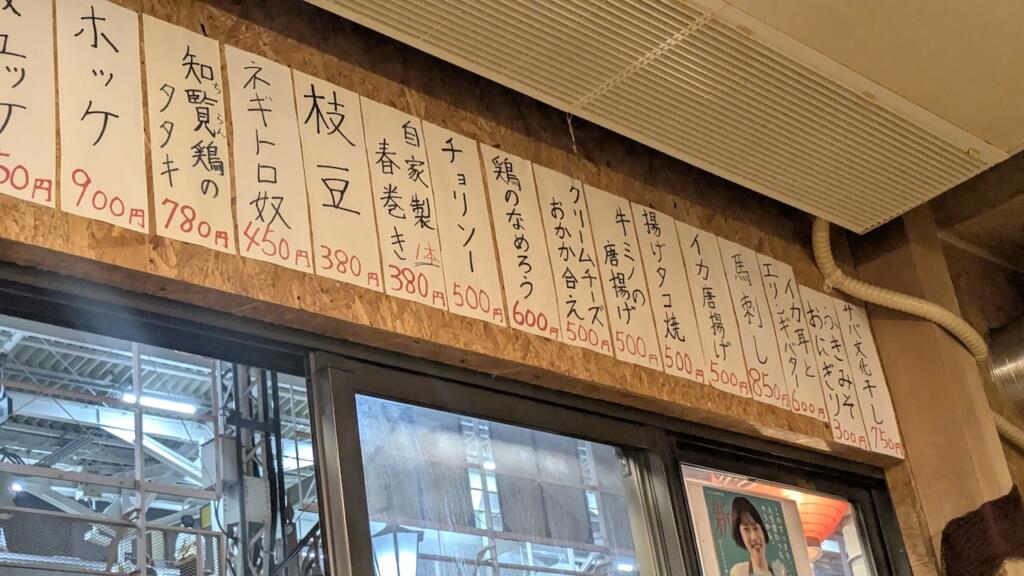 ユッケ
50円
ホッケ
900円
知覧鶏の
ちらん
タタキ
780円
ネギトロ奴
450円
枝豆
380円
自家製
春巻き
1本
380円
チョリソー
500円
鶏のなめろう
600円
クリームチーズ
おかか合え
500円
牛ミノの
唐揚げ
500円
揚げタコ焼
500円
イカ唐揚げ
500円
馬刺し
850円
イカ耳と
エリンギバター
600円
ふきみそ
おにぎり
300円
サバ文化干し
750円